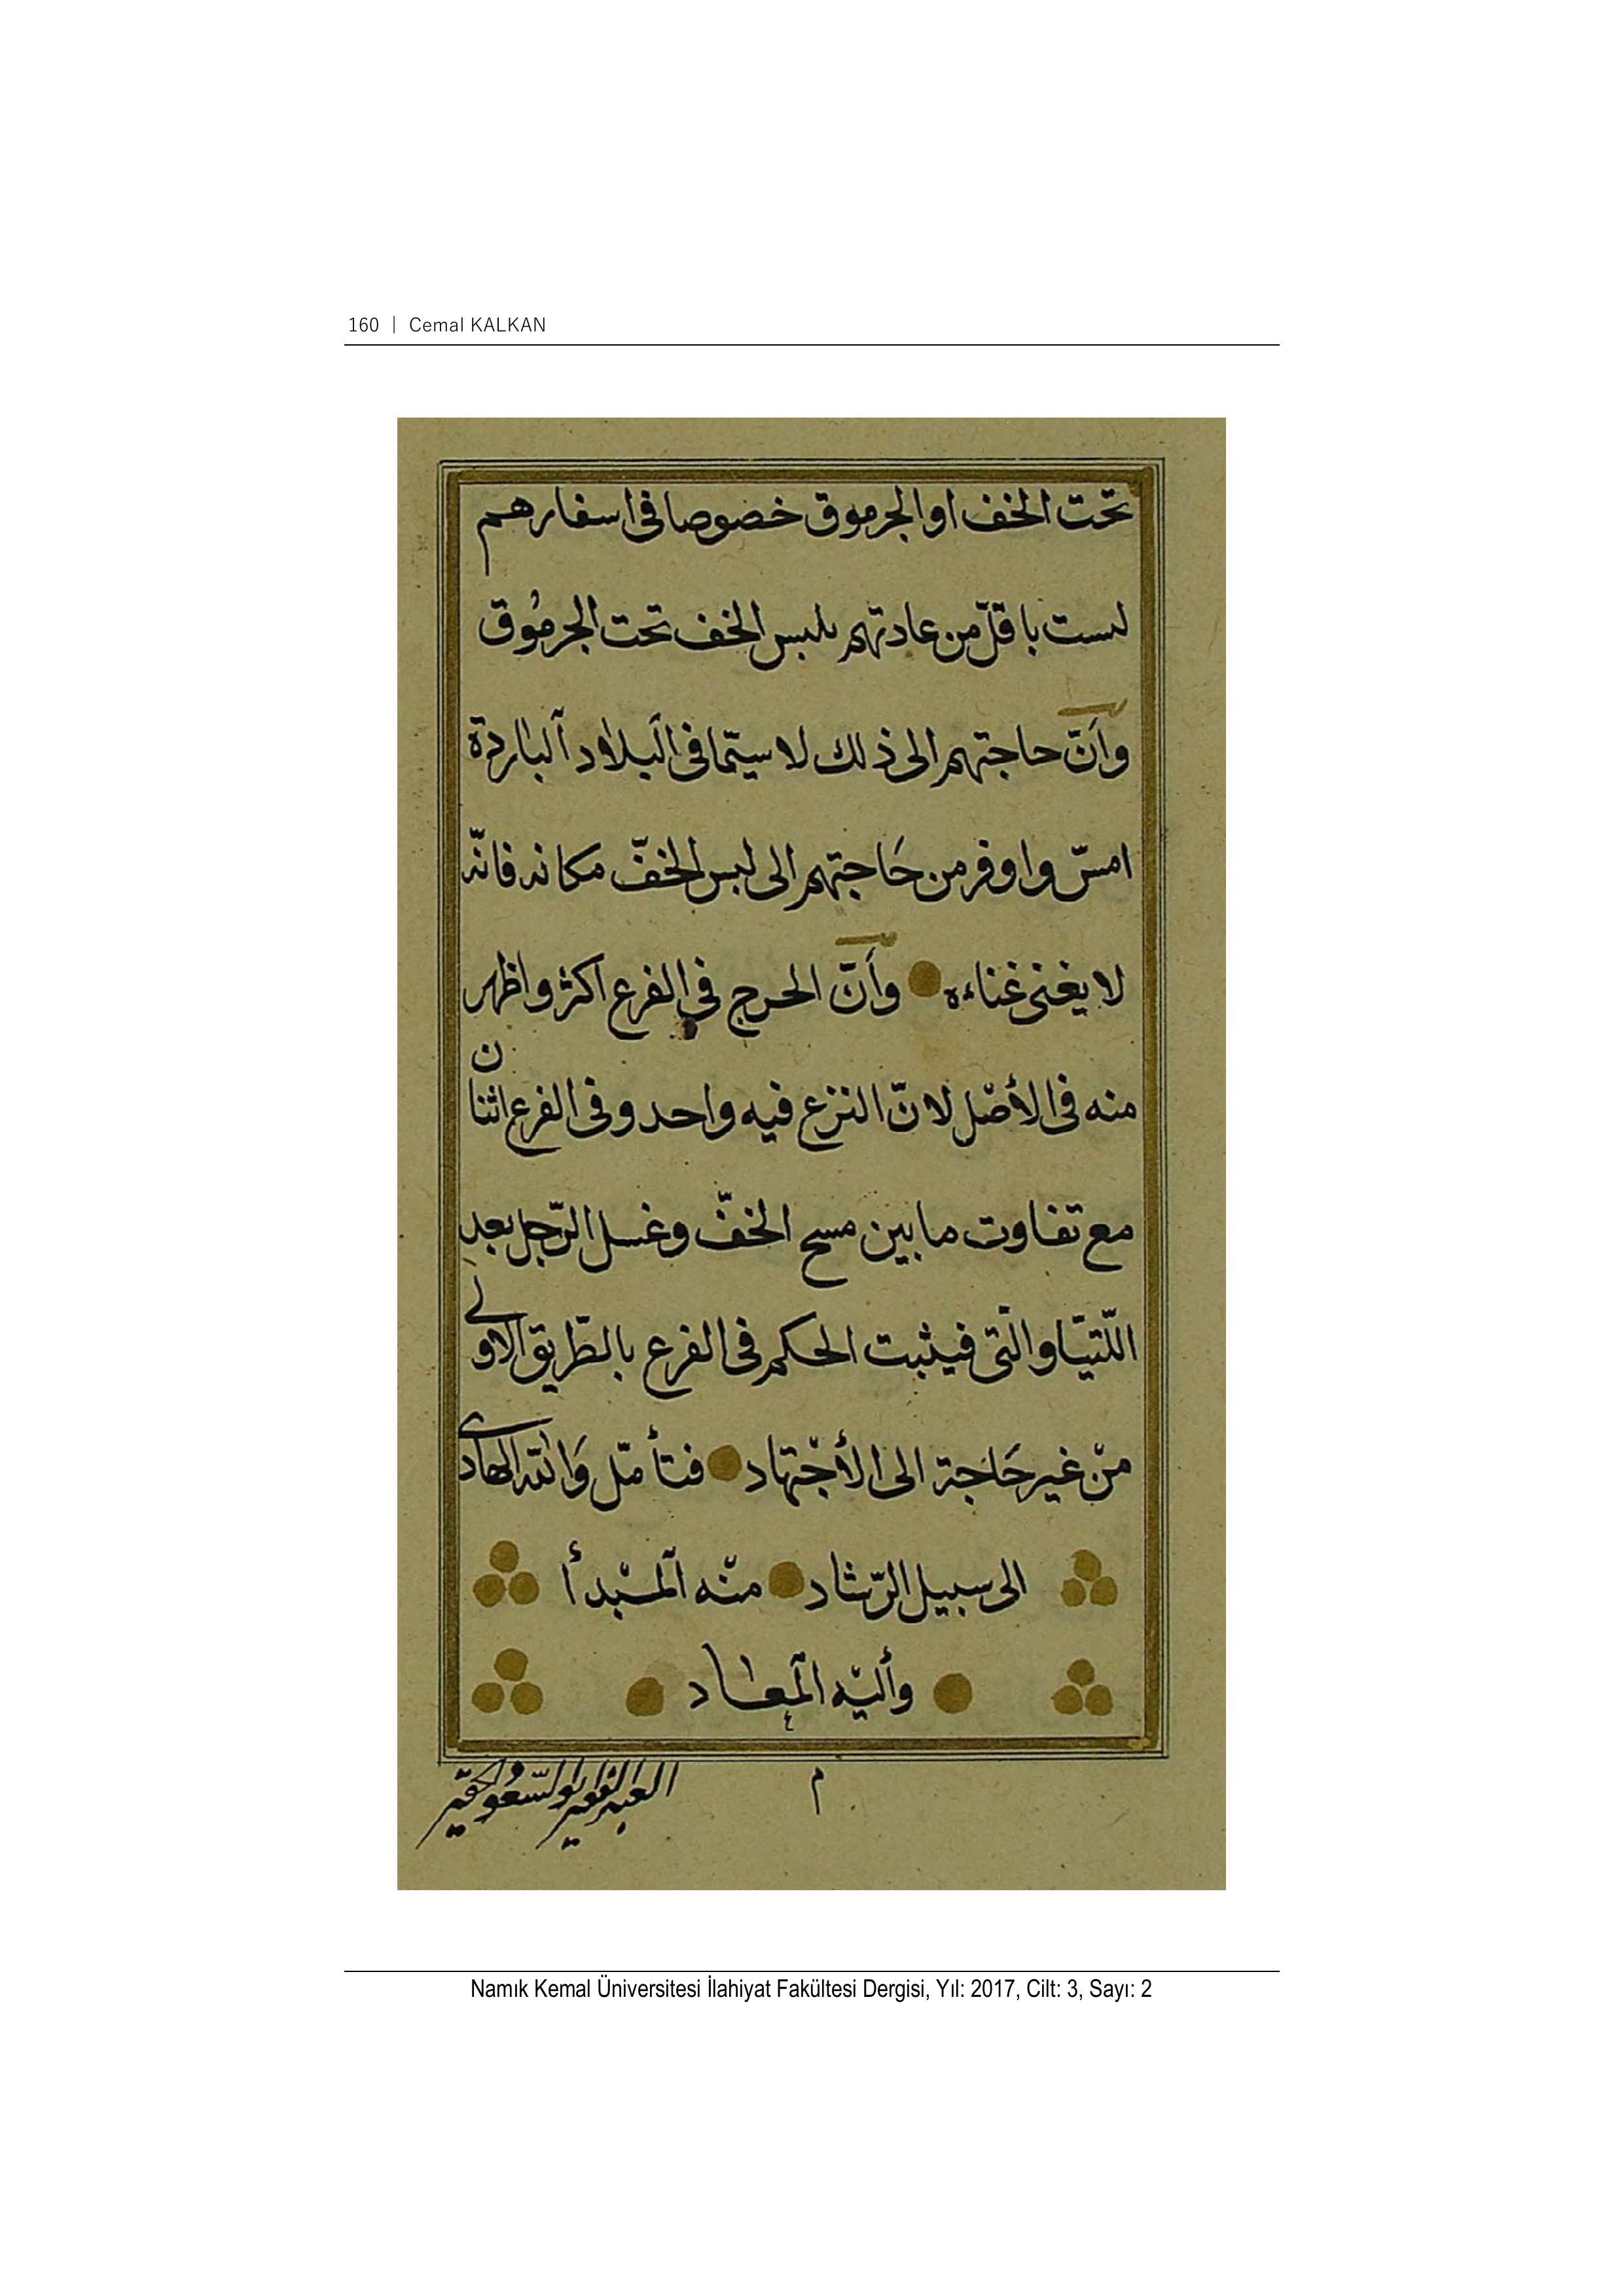 160 | Cemal KALKAN
تحت الخف او الجرموق خصوصا فى اسفارهم
ليست باقلّ من عادتهم بلبس الخف تحت الجرمُوق
وأنّ حاجتهم الى ذلك لا سيّما فى البلاد الباردة
امسّ واوفر من حَاجتهم الى لبس الخفّ مكانه فانّه
لا يغنى غناءه وأنّ الحرج فى الفرع اكثر واظهر
منه فى الأصْل لانّ النزع فيه واحد وفى الفرع اثنان
مع تفاوت ما بين مسح الخفّ وغسل الرّجل بعد
اللّتيّا والّتى فيثبت الحكم فى الفرع بالطّريق الاولى
منْ غير حَاجة الى الأجْتهاد فتأمّل وَالله الهادى
الى سبيل الرّشاد منْه المبْدأ
وأليْه المعاد
م
العبد الفقير ابو السّعُود الحقير
Namık Kemal Üniversitesi İlahiyat Fakültesi Dergisi, Yıl: 2017, Cilt: 3, Sayı: 2